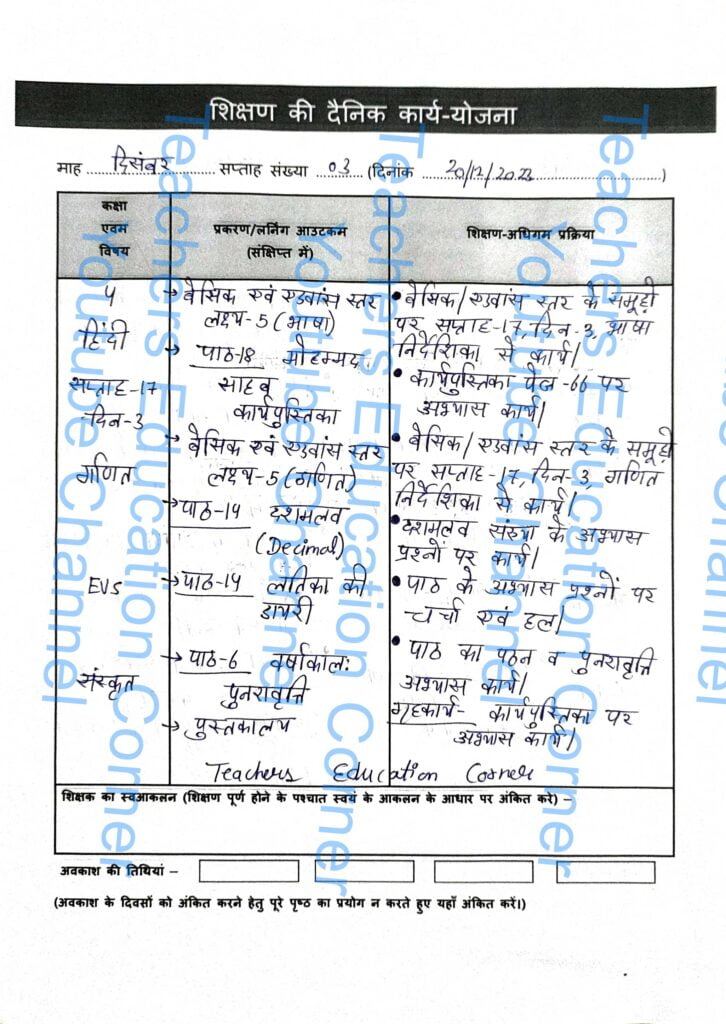 शिक्षण की दैनिक कार्य-योजना
माह दिसंबर सप्ताह संख्या 03 (दिनांक 20/12/2023)
कक्षा
एवम
विषय
प्रकरण/लर्निंग आउटकम
(संक्षिप्त में)
शिक्षण-अधिगम प्रक्रिया
5
हिंदी
सप्ताह-17
दिन-3
→ बेसिक एवं एडवांस स्तर
लक्ष्य-5 (भाषा)
→ पाठ-18 मोहम्मद
साहब
कार्यपुस्तिका
• बेसिक/एडवांस स्तर के समूहों
पर सप्ताह-17, दिन-3, भाषा
निर्देशिका से कार्य।
• कार्यपुस्तिका पेज-66 पर
अभ्यास कार्य।
गणित
→ बेसिक एवं एडवांस स्तर
लक्ष्य-5 (गणित)
→ पाठ-14 दशमलव
(Decimal)
• बेसिक/एडवांस स्तर के समूहों
पर सप्ताह-17, दिन-3, गणित
निर्देशिका से कार्य।
• दशमलव संख्या के अभ्यास
प्रश्नों पर कार्य।
EVS
→ पाठ-14 लतिका की
डायरी
• पाठ के अभ्यास प्रश्नों पर
चर्चा एवं हल।
संस्कृत
→ पाठ-6 वर्षाकालः
पुनरावृत्ति
→ पुस्तकालय
• पाठ का पठन व पुनरावृत्ति
अभ्यास कार्य।
गृहकार्य- कार्यपुस्तिका पर
अभ्यास कार्य।
Teachers Education Corner
शिक्षक का स्वआकलन (शिक्षण पूर्ण होने के पश्चात स्वयं के आकलन के आधार पर अंकित करे) –
अवकाश की तिथियां –
(अवकाश के दिवसों को अंकित करने हेतु पूरे पृष्ठ का प्रयोग न करते हुए यहाँ अंकित करें।)
Teachers Education Corner
Youtube Channel
Teachers Education Corner
Youtube Channel
Teachers Education Corner
Youtube Channel